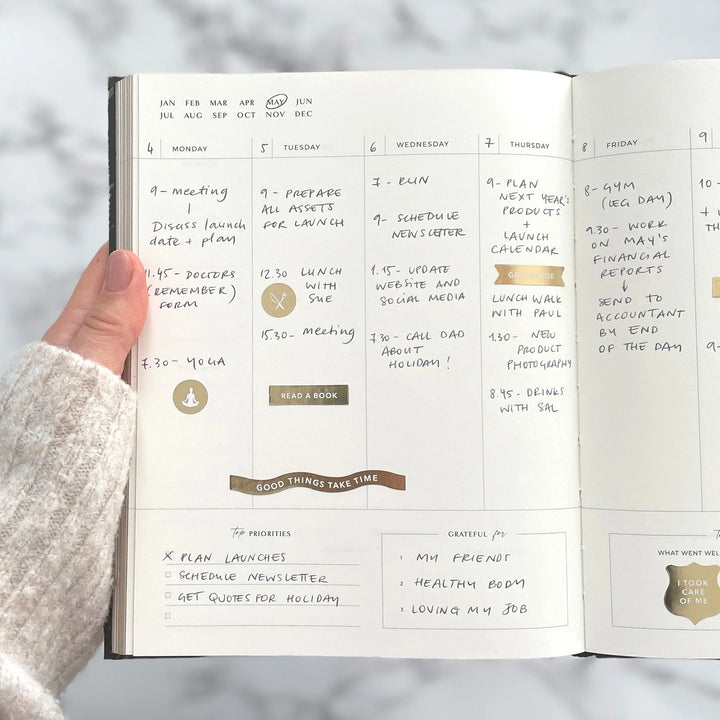 JAN FEB MAR APR MAY JUN
JUL AUG SEP OCT NOV DEC
4 MONDAY
9 - meeting
Disuss launch
date + plan
11.45 - DOCTORS
(REMEMBER)
FORM
7.30 - YOGA
5 TUESDAY
9 - PREPARE
ALL ASSETS
FOR LAUNCH
12.30 LUNCH
WITH
SUE
15.30 - meeting
READ A BOOK
6 WEDNESDAY
7 - RUN
9 - SCHEDULE
NEWSLETTER
1.15 - UPDATE
WEBSITE AND
SOCIAL MEDIA
7.30 - CALL DAD
ABOUT
HOLIDAY!
GOOD THINGS TAKE TIME
7 THURSDAY
9 - PLAN
NEXT YEAR'S
PRODUCTS
+
LAUNCH
CALENDAR
LUNCH WALK
WITH PAUL
1.30 - NEW
PRODUCT
PHOTOGRAPHY
8.45 - DRINKS
WITH SAL
8 FRIDAY
8 - GYM
(LEG DAY)
9.30 - WORK
ON MAY'S
FINANCIAL
REPORTS
↓
SEND TO
ACCOUNTANT
BY END
OF THE DAY
9
10 -
+
TH
9 -
top PRIORITIES
X PLAN LAUNCHES
SCHEDULE NEWSLETTER
GET QUOTES FOR HOLIDAY
GRATEFUL for
1 MY FRIENDS
2 HEALTHY BODY
3 LOVING MY JOB
WHAT WENT WEL
I TOOK
CARE
OF ME